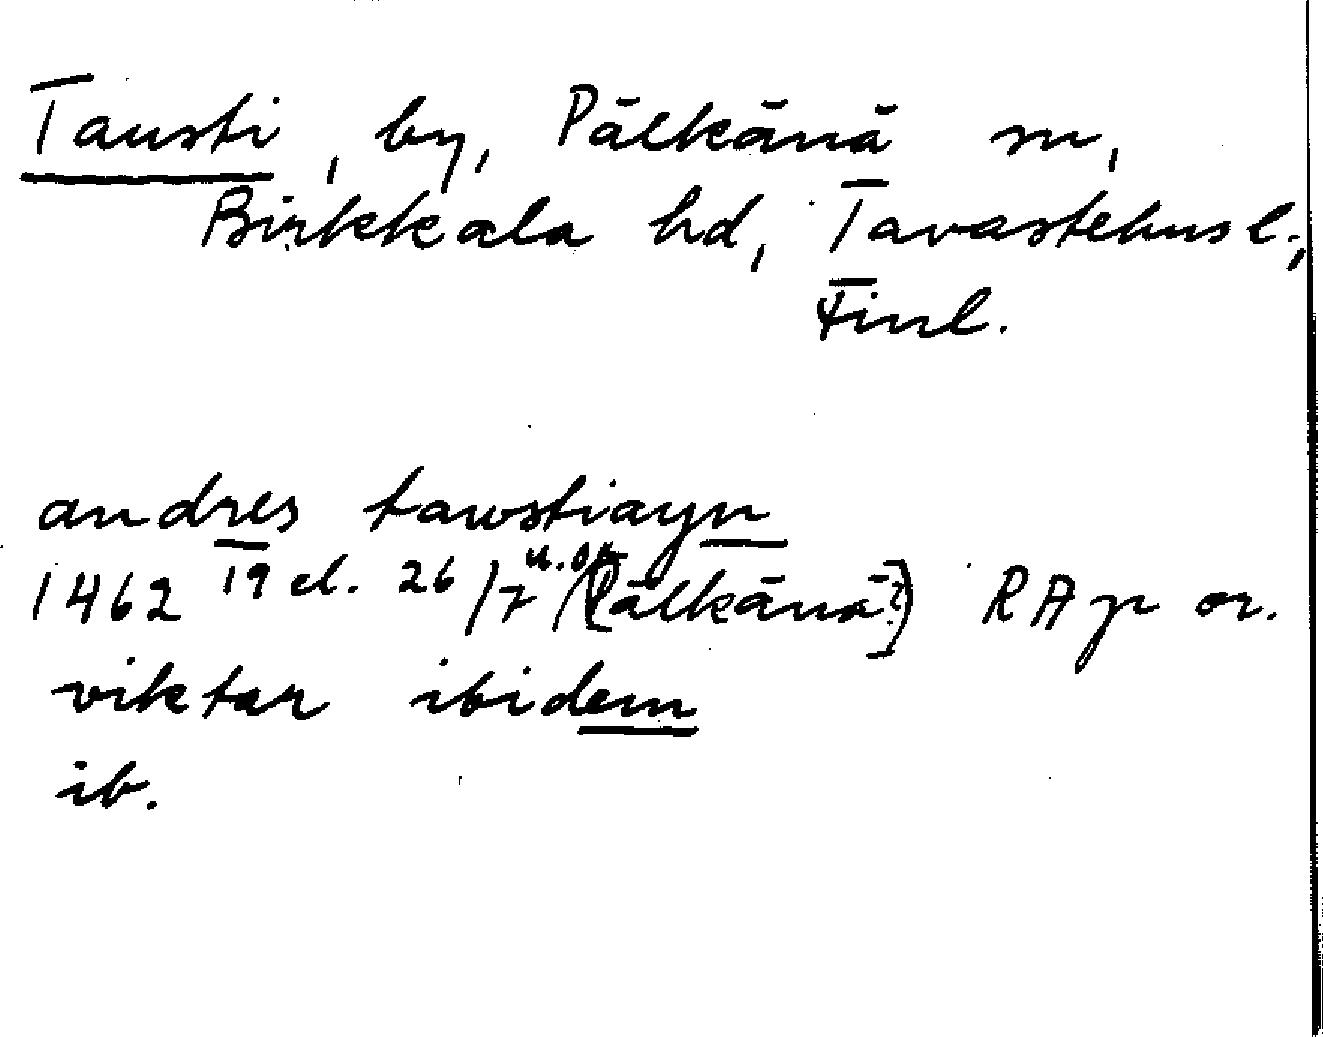 Tausti, by, Pälkänä sn,
Birkkala hd, Tavastehus l.,
Finl.
andres tawstiayn
1462 19 el. 26/7 u.o. [Pälkänä?] RAp or.
viktar ibidem
ib.